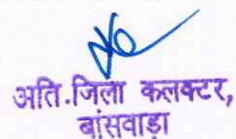 अति.जिला कलक्टर,
बांसवाड़ा